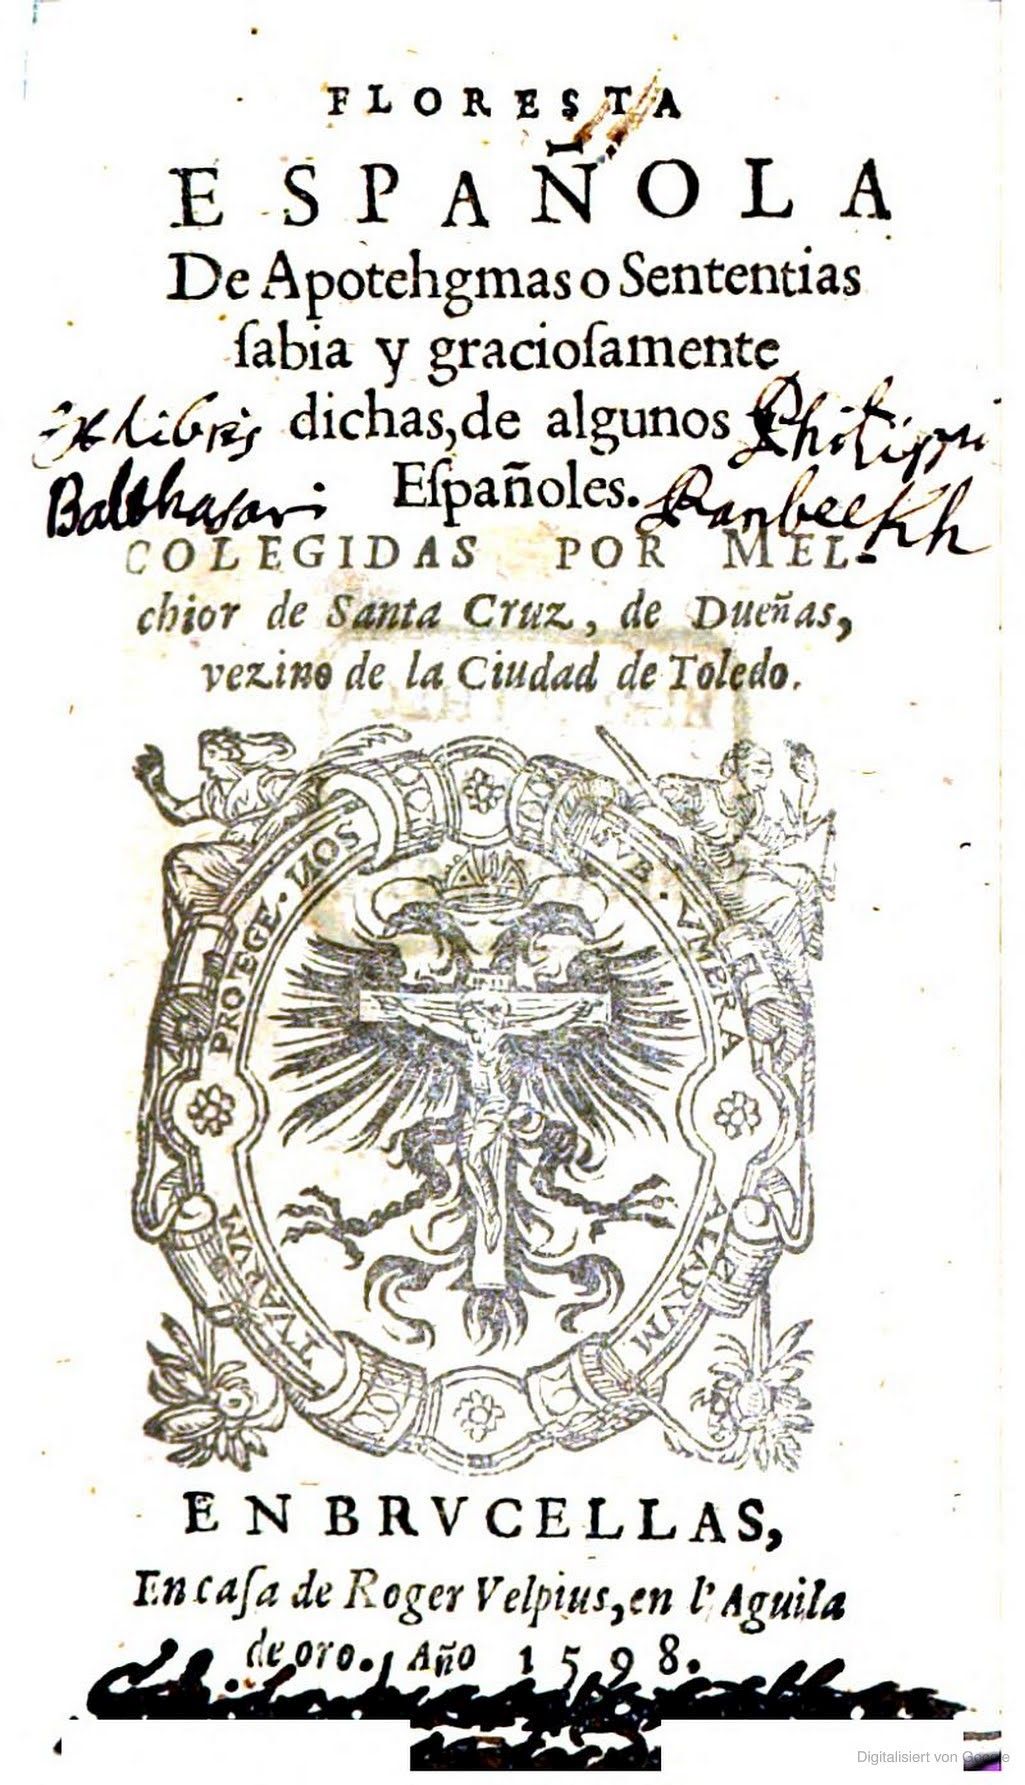 FLORESTA
ESPAÑOLA
De Apotehgmas o Sententias
ſabia y gracioſamente
dichas, de algunos
Eſpañoles.
Ex libris Philippi
Balthasari
COLEGIDAS POR MEL-
chior de Santa Cruz, de Dueñas,
vezino de la Ciudad de Toledo.
SVB VMBRA
ALARVM
TVARVM
PROEGE. NOS
EN BRVCELLAS,
En caſa de Roger Velpius, en l'Aguila
de oro. Año 1598.
Digitalisiert von Google